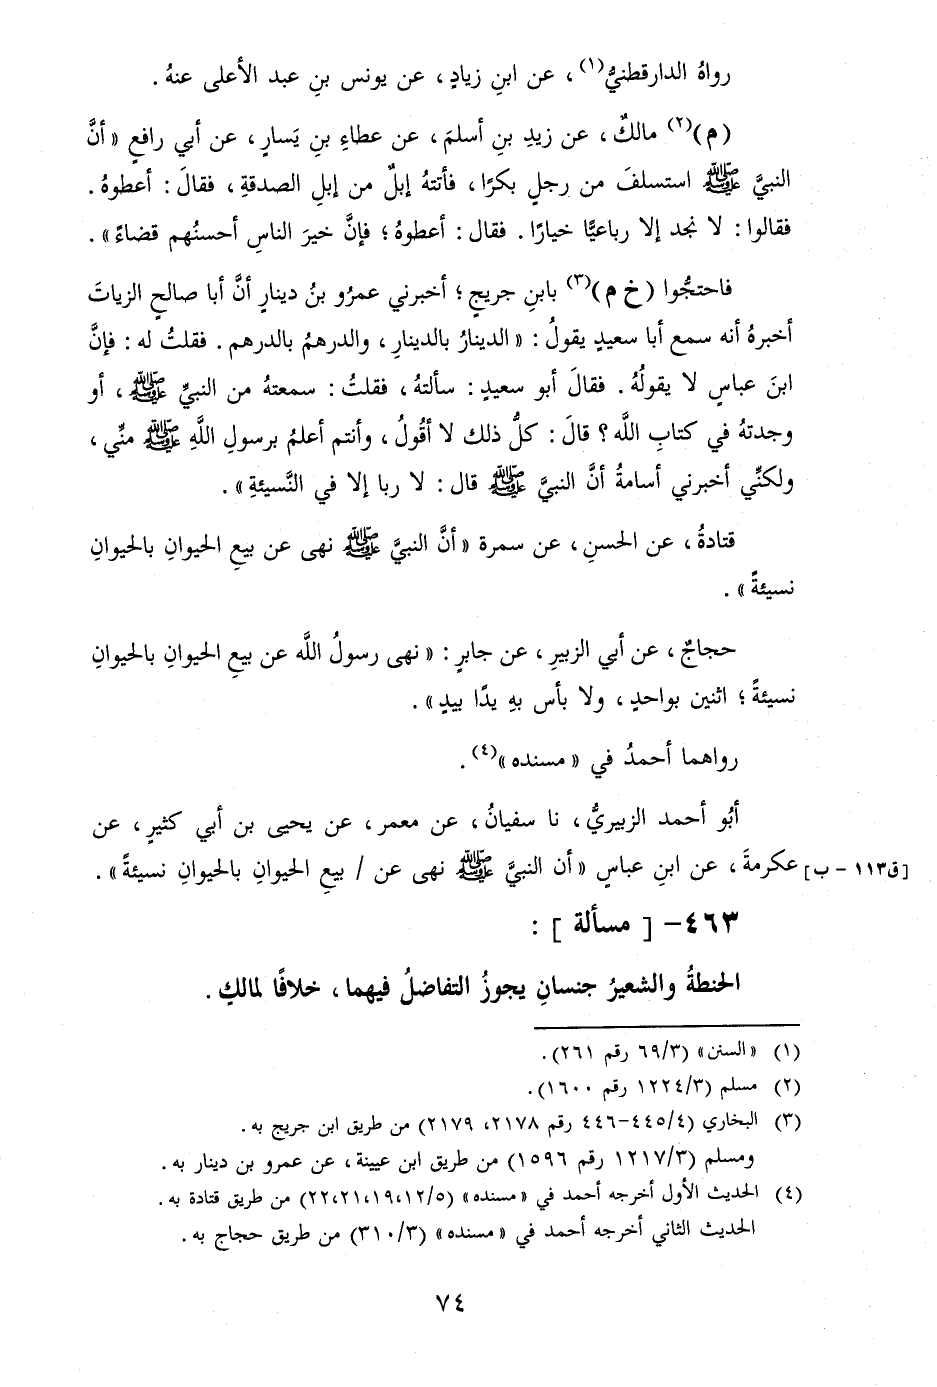 رواهُ الدارقطنيُّ(١) ، عن ابنِ زيادٍ ، عن يونس بنِ عبد الأعلى عنهُ .
(م)(٢) مالكٌ ، عن زيدِ بنِ أسلمَ ، عن عطاءِ بنِ يَسارٍ ، عن أبي رافعٍ « أنَّ
النبيَّ ﷺ استسلفَ من رجلٍ بكرًا ، فأتتهُ إبلٌ من إبلِ الصدقةِ ، فقالَ : أعطوهُ .
فقالوا : لا نجد إلا رباعيًّا خيارًا . فقال : أعطوهُ ؛ فإنَّ خيرَ الناسِ أحسنُهم قضاءً » .
فاحتجُّوا (خ م)(٣) بابنِ جريجٍ ؛ أخبرني عمرُو بنُ دينارٍ أنَّ أبا صالحٍ الزياتَ
أخبرهُ أنه سمع أبا سعيدٍ يقولُ : « الدينارُ بالدينارِ ، والدرهمُ بالدرهم . فقلتُ له : فإنَّ
ابنَ عباسٍ لا يقولُهُ . فقالَ أبو سعيدٍ : سألتهُ ، فقلتُ : سمعتهُ من النبيِّ ﷺ ، أو
وجدتهُ في كتابِ اللَّه ؟ قالَ : كلُّ ذلك لا أقُولُ ، وأنتم أعلمُ برسولِ اللَّهِ ﷺ منِّي ،
ولكنِّي أخبرني أسامةُ أنَّ النبيَّ ﷺ قال : لا ربا إلا في النَّسيئةِ » .
قتادةُ ، عن الحسنِ ، عن سمرة « أنَّ النبيَّ ﷺ نهى عن بيعِ الحيوانِ بالحيوانِ
نسيئةً » .
حجاجٌ ، عن أبي الزبيرِ ، عن جابرٍ : « نهى رسولُ اللَّه عن بيعِ الحيوانِ بالحيوانِ
نسيئةً ؛ اثنين بواحدٍ ، ولا بأس بهِ يدًا بيدٍ » .
رواهما أحمدُ في « مسنده »(٤) .
أبُو أحمد الزبيريُّ ، نا سفيانُ ، عن معمر ، عن يحيى بن أبي كثيرٍ ، عن
عكرمةَ ، عن ابنِ عباسٍ « أن النبيَّ ﷺ نهى عن / بيعِ الحيوانِ بالحيوانِ نسيئةً » . [ق١١٣ - ب]
٤٦٣- [ مسألة ] :
الحنطةُ والشعيرُ جنسانِ يجوزُ التفاضلُ فيهما ، خلافًا لمالكٍ .
(١) « السنن » (٦٩/٣ رقم ٢٦١) .
(٢) مسلم (١٢٢٤/٣ رقم ١٦٠٠) .
(٣) البخاري (٤٤٥/٤-٤٤٦ رقم ٢١٧٨، ٢١٧٩) من طريق ابن جريج به .
ومسلم (١٢١٧/٣ رقم ١٥٩٦) من طريق ابن عيينة ، عن عمرو بن دينار به .
(٤) الحديث الأول أخرجه أحمد في « مسنده » (١٢/٥، ١٩، ٢١، ٢٢) من طريق قتادة به .
الحديث الثاني أخرجه أحمد في « مسنده » (٣١٠/٣) من طريق حجاج به .
٧٤